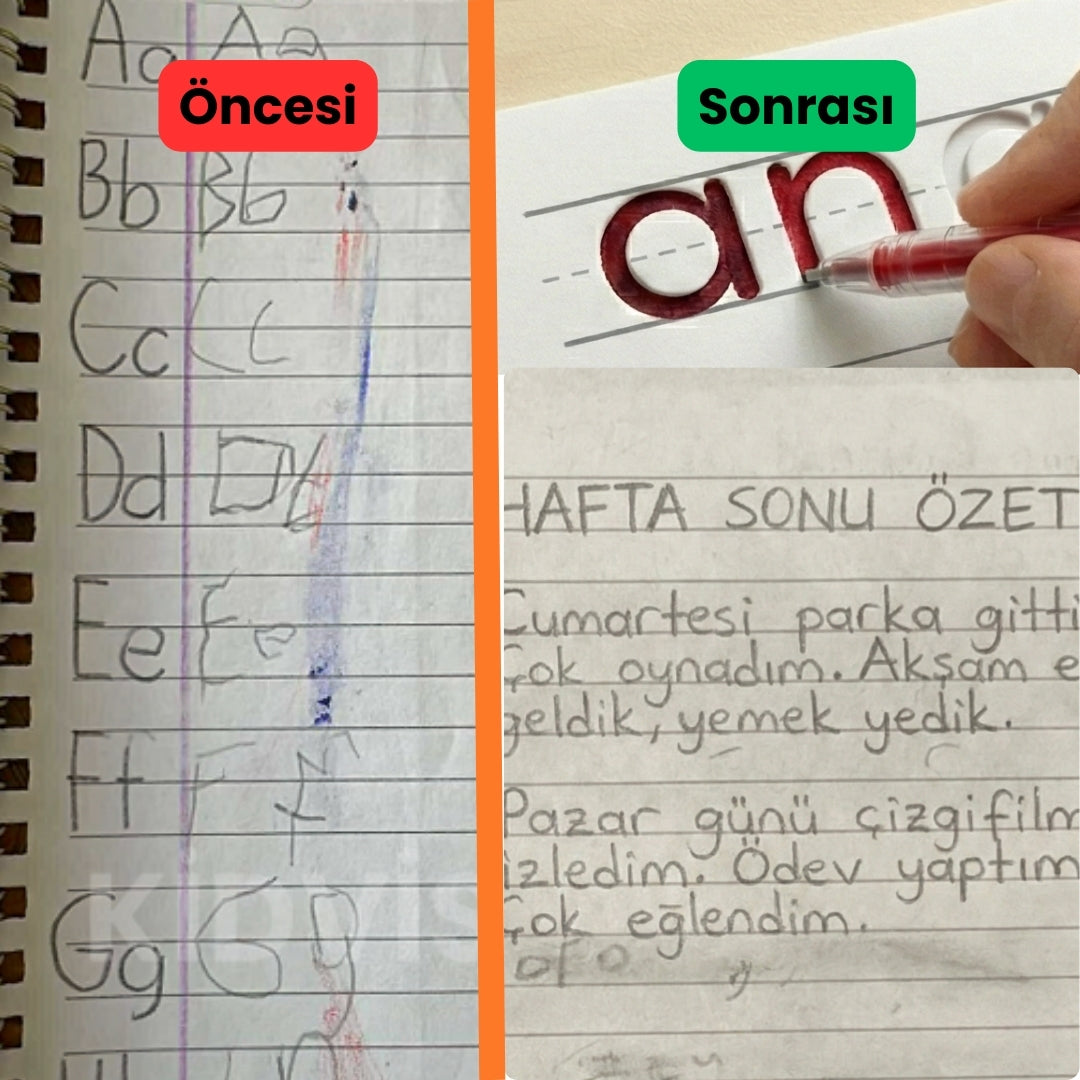 Öncesi
Aa Aa
Bb Bb
Cc Cc
Dd Db
Ee Ee
Ff Ff
Gg Gg
Sonrası
an
HAFTA SONU ÖZET
Cumartesi parka gitti
Çok oynadım. Akşam e
geldik, yemek yedik.
Pazar günü çizgifilm
izledim. Ödev yaptım
Çok eğlendim.